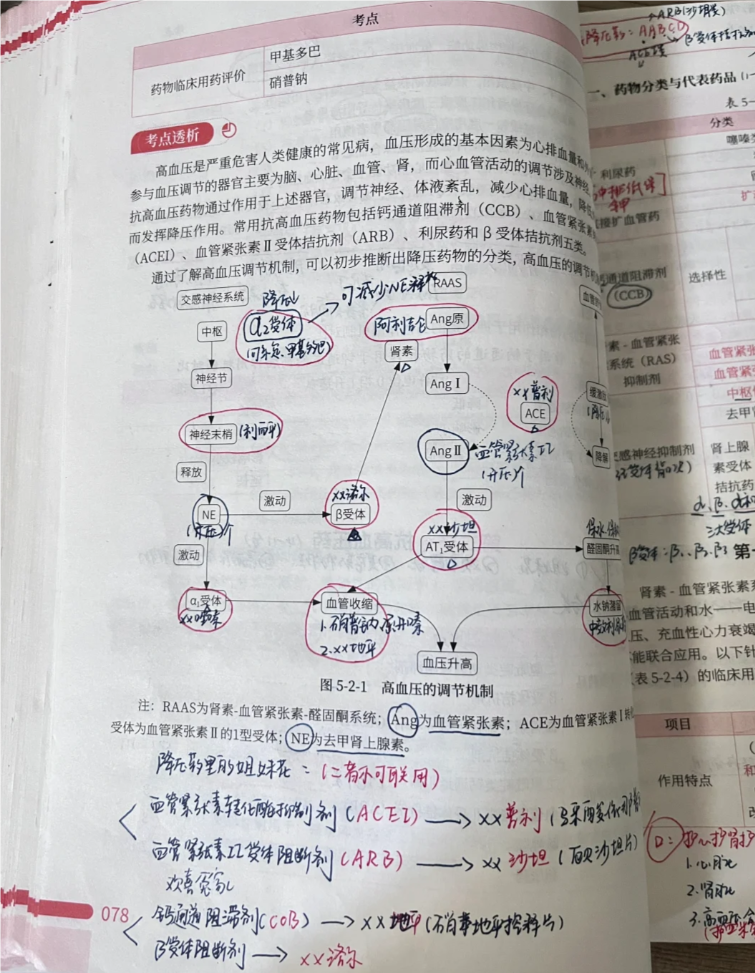 考点
药物临床用药评价
甲基多巴
硝普钠
考点透析
高血压是严重危害人类健康的常见病，血压形成的基本因素为心排血量和
参与血压调节的器官主要为脑、心脏、血管、肾，而心血管活动的调节涉及神经
抗高血压药物通过作用于上述器官，调节神经、体液紊乱，减少心排血量，降低
而发挥降压作用。常用抗高血压药物包括钙通道阻滞剂（CCB）、血管紧张素
（ACEI）、血管紧张素Ⅱ受体拮抗剂（ARB）、利尿药和β受体拮抗剂五类。
通过了解高血压调节机制，可以初步推断出降压药物的分类，高血压的调节机
交感神经系统
降血压
可减少NE释放
RAAS
中枢
α₂受体
阿利吉仑
Ang原
肾素
神经节
AngⅠ
xx普利
ACE
缓激肽
神经末梢
(利血平)
AngⅡ
血管紧张素II
(升压)↑
降解
释放
NE
(升压)↑
激动
xx洛尔
β受体
激动
xx沙坦
AT₁受体
醛固酮升高
激动
α₁受体
xx唑嗪
血管收缩
1.硝普钠
2.xx地平
水钠潴留
血压升高
图 5-2-1 高血压的调节机制
注：RAAS为肾素-血管紧张素-醛固酮系统；Ang为血管紧张素；ACE为血管紧张素Ⅰ转
受体为血管紧张素Ⅱ的1型受体；NE为去甲肾上腺素。
=(二者不可联用)
血管紧张素转化酶抑制剂(ACEI) → xx普利
血管紧张素II受体阻断剂(ARB) → xx沙坦
欢喜冤家
钙通道阻滞剂(CCB) → xx地平(硝苯地平控释片)
β受体阻断剂 → xx洛尔
078
ARB(沙坦类)
一、药物分类与代表药品
表 5-
分类
利尿药
扩血管药
通道阻滞剂
(CCB)
选择性
素-血管紧张
系统（RAS）
抑制剂
血管紧张
血管紧
中枢
去甲
感神经抑制剂
肾上腺
素受体
拮抗药
三大受体
肾素-血管紧张素系
血管活动和水——电
压、充血性心力衰竭
能联合应用。以下针
表 5-2-4）的临床用
项目
作用特点
1.心脏
2.肾脏
3.高血压